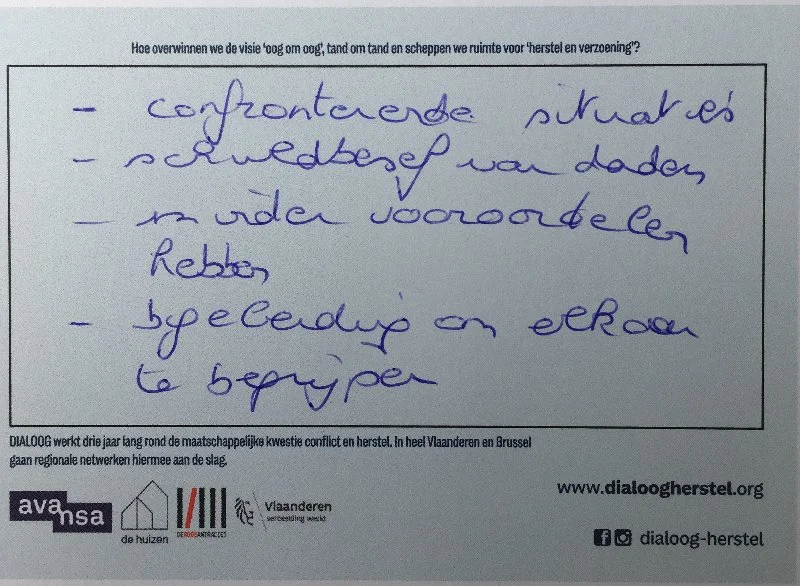 Hoe overwinnen we de visie 'oog om oog', tand om tand en scheppen we ruimte voor 'herstel en verzoening'?
- confronterende situaties
- schuldbesef van daden
- minder vooroordelen
hebben
- begeleiding om elkaar
te begrijpen
DIALOOG werkt drie jaar lang rond de maatschappelijke kwestie conflict en herstel. In heel Vlaanderen en Brussel
gaan regionale netwerken hiermee aan de slag.
www.dialoogherstel.org
avansa
de huizen
DERODEANTRACIET
Vlaanderen
verbeelding werkt
dialoog-herstel